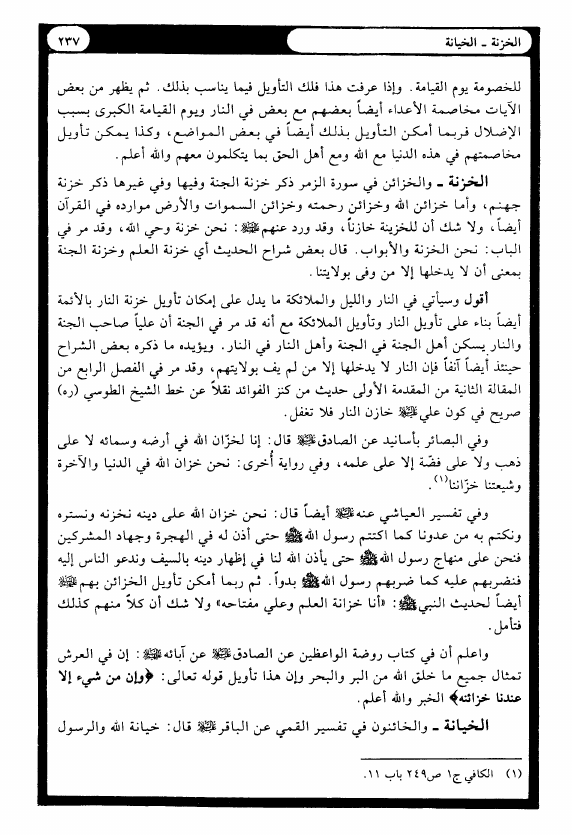 الخزنة ـ الخيانة
٢٣٧
للخصومة يوم القيامة. وإذا عرفت هذا فلك التأويل فيما يناسب بذلك. ثم يظهر من بعض
الآيات مخاصمة الأعداء أيضاً بعضهم مع بعض في النار ويوم القيامة الكبرى بسبب
الإضلال فربما أمكن التأويل بذلك أيضاً في بعض المواضع، وكذا يمكن تأويل
مخاصمتهم في هذه الدنيا مع الله ومع أهل الحق بما يتكلمون معهم والله أعلم.
الخزنة ـ والخزائن في سورة الزمر ذكر خزنة الجنة وفيها وفي غيرها ذكر خزنة
جهنم، وأما خزائن الله وخزائن رحمته وخزائن السموات والأرض موارده في القرآن
أيضاً، ولا شك أن للخزينة خازناً، وقد ورد عنهم ﷺ: نحن خزنة وحي الله، وقد مر في
الباب: نحن الخزنة والأبواب. قال بعض شراح الحديث أي خزنة العلم وخزنة الجنة
بمعنى أن لا يدخلها إلا من وفى بولايتنا.
أقول وسيأتي في النار والليل والملائكة ما يدل على إمكان تأويل خزنة النار بالأئمة
أيضاً بناء على تأويل النار وتأويل الملائكة مع أنه قد مر في الجنة أن علياً صاحب الجنة
والنار يسكن أهل الجنة في الجنة وأهل النار في النار. ويؤيده ما ذكره بعض الشراح
حينئذ أيضاً آنفاً فإن النار لا يدخلها إلا من لم يف بولايتهم، وقد مر في الفصل الرابع من
المقالة الثانية من المقدمة الأولى حديث من كنز الفوائد نقلاً عن خط الشيخ الطوسي (ره)
صريح في كون علي خازن النار فلا تغفل.
وفي البصائر بأسانيد عن الصادق قال: إنا لخزّان الله في أرضه وسمائه لا على
ذهب ولا على فضّة إلا على علمه، وفي رواية أُخرى: نحن خزان الله في الدنيا والآخرة
وشيعتنا خزّاننا(١).
وفي تفسير العياشي عنه أيضاً قال: نحن خزان الله على دينه نخزنه ونستره
ونكتم به من عدونا كما اكتتم رسول الله ﷺ حتى أذن له في الهجرة وجهاد المشركين
فنحن على منهاج رسول الله ﷺ حتى يأذن الله لنا في إظهار دينه بالسيف وندعو الناس إليه
فنضربهم عليه كما ضربهم رسول الله ﷺ بدواً. ثم ربما أمكن تأويل الخزائن بهم
أيضاً لحديث النبي ﷺ: «أنا خزانة العلم وعلي مفتاحه» ولا شك أن كلاً منهم كذلك
فتأمل.
واعلم أن في كتاب روضة الواعظين عن الصادق عن آبائه: إن في العرش
تمثال جميع ما خلق الله من البر والبحر وإن هذا تأويل قوله تعالى: ﴿وإن من شيء إلا
عندنا خزائنه﴾ الخبر والله أعلم.
الخيانة ـ والخائنون في تفسير القمي عن الباقر قال: خيانة الله والرسول
(١) الكافي ج١ ص٢٤٩ باب ١١.